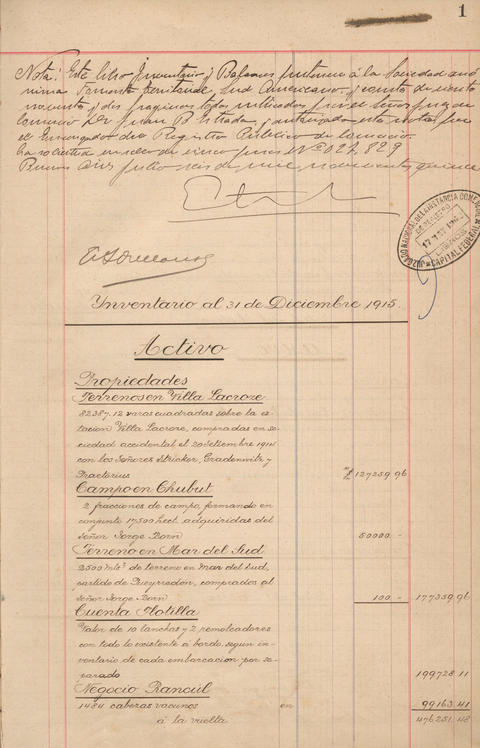 1
Nota: Este libro Inventario y Balances pertenece á la Sociedad anó-
nima Fomento Territorial Sud Americano, y consta de ciento
noventa y dos páginas todas rubricadas por el Señor Juez de
Comercio Dr Juan B Estrada, y autorizada esta nota por
el Encargado del Registro Público de Comercio.
La solicitud en sellos de cinco pesos Nº 024,829
Buenos Aires Julio seis de mil novecientos quince
CAPITAL FEDERAL
Ynventario al 31 de Diciembre 1915.
Activo
Propiedades
Terrenos en Villa Lacroze
82387.12 varas cuadradas sobre la es-
tacion Villa Lacroze, compradas en so-
ciedad accidental el 20 Setiembre 1914
con los Señores Stricker, Gradenwitz y
Praetorius 127259.96
Campo en Chubut
2 fracciones de campo, formando en
conjunto 17500 hect. adquiridas del
Señor Jorge Born 50000.-
Terreno en Mar del Sud
2500 mts² de terreno en Mar del Sud,
partido de Pueyrredón, comprados al
Señor Jorge Born 100.- 177359.96
Cuenta Flotilla
Valor de 10 lanchas y 2 remolcadores
con todo lo existente a bordo, segun in-
ventario de cada embarcacion por se-
parado 199728.11
Negocio Rancúl
1484 cabezas vacunos en 99163.41
á la vuelta 476251.48